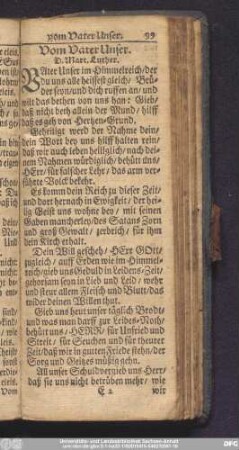 vom Vater Unser. 99
Vom Vater Unser.
D. Mart. Luther.
VAter Unser im Himmelreich/ der
du uns alle heissest gleich/ Brü-
der seyn/ und dich ruffen an/ und
wilt das bethen von uns han: Gieb/
daß nicht beth allein der Mund/ hilff
daß es geh von Hertzen-Grund.
Geheiliget werd der Nahme dein/
dein Wort bey uns hilff halten rein/
daß wir auch leben heiliglich/ nach dei-
nem Nahmen würdiglich/ behüt uns/
HErr/ für falscher Lehr/ das arm ver-
führte Volck bekehr.
Es komm dein Reich zu dieser Zeit/
und dort hernach in Ewigkeit/ der hei-
lig Geist uns wohne bey/ mit seinen
Gaben mancherley/ des Satans Zorn
und groß Gewalt/ zerbrich/ für ihm
dein Kirch erhalt.
Dein Will gescheh/ HErr GOtt/
zugleich/ auff Erden wie im Himmel-
reich/ gieb uns Geduld in Leidens-Zeit/
gehorsam seyn in Lieb und Leid/ wehr
und steur allem Fleisch und Blut/ das
wider deinen Willen thut.
Gieb uns heut unser täglich Brodt/
und was man darff zur Leibes-Noth/
behüt uns/ HERR/ für Unfried und
Streit/ für Seuchen und für theurer
Zeit/ daß wir in gutem Friede stehn/ der
Sorg und Geitzes müßig gehn.
All unser Schuld vergieb uns HErr/
daß sie uns nicht betrüben mehr/ wie
E 2 wir